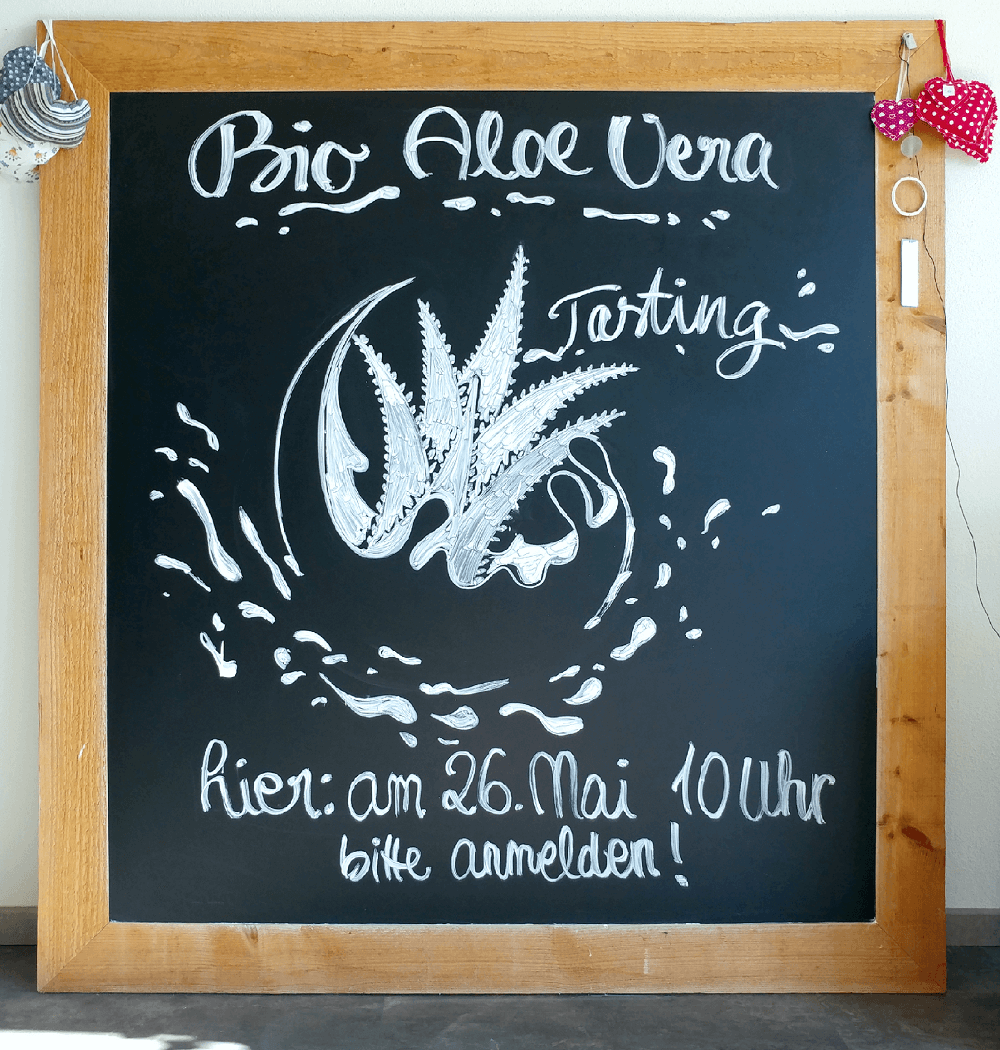 Bio Aloe Vera
Tasting
hier: am 26. Mai 10 Uhr
bitte anmelden!